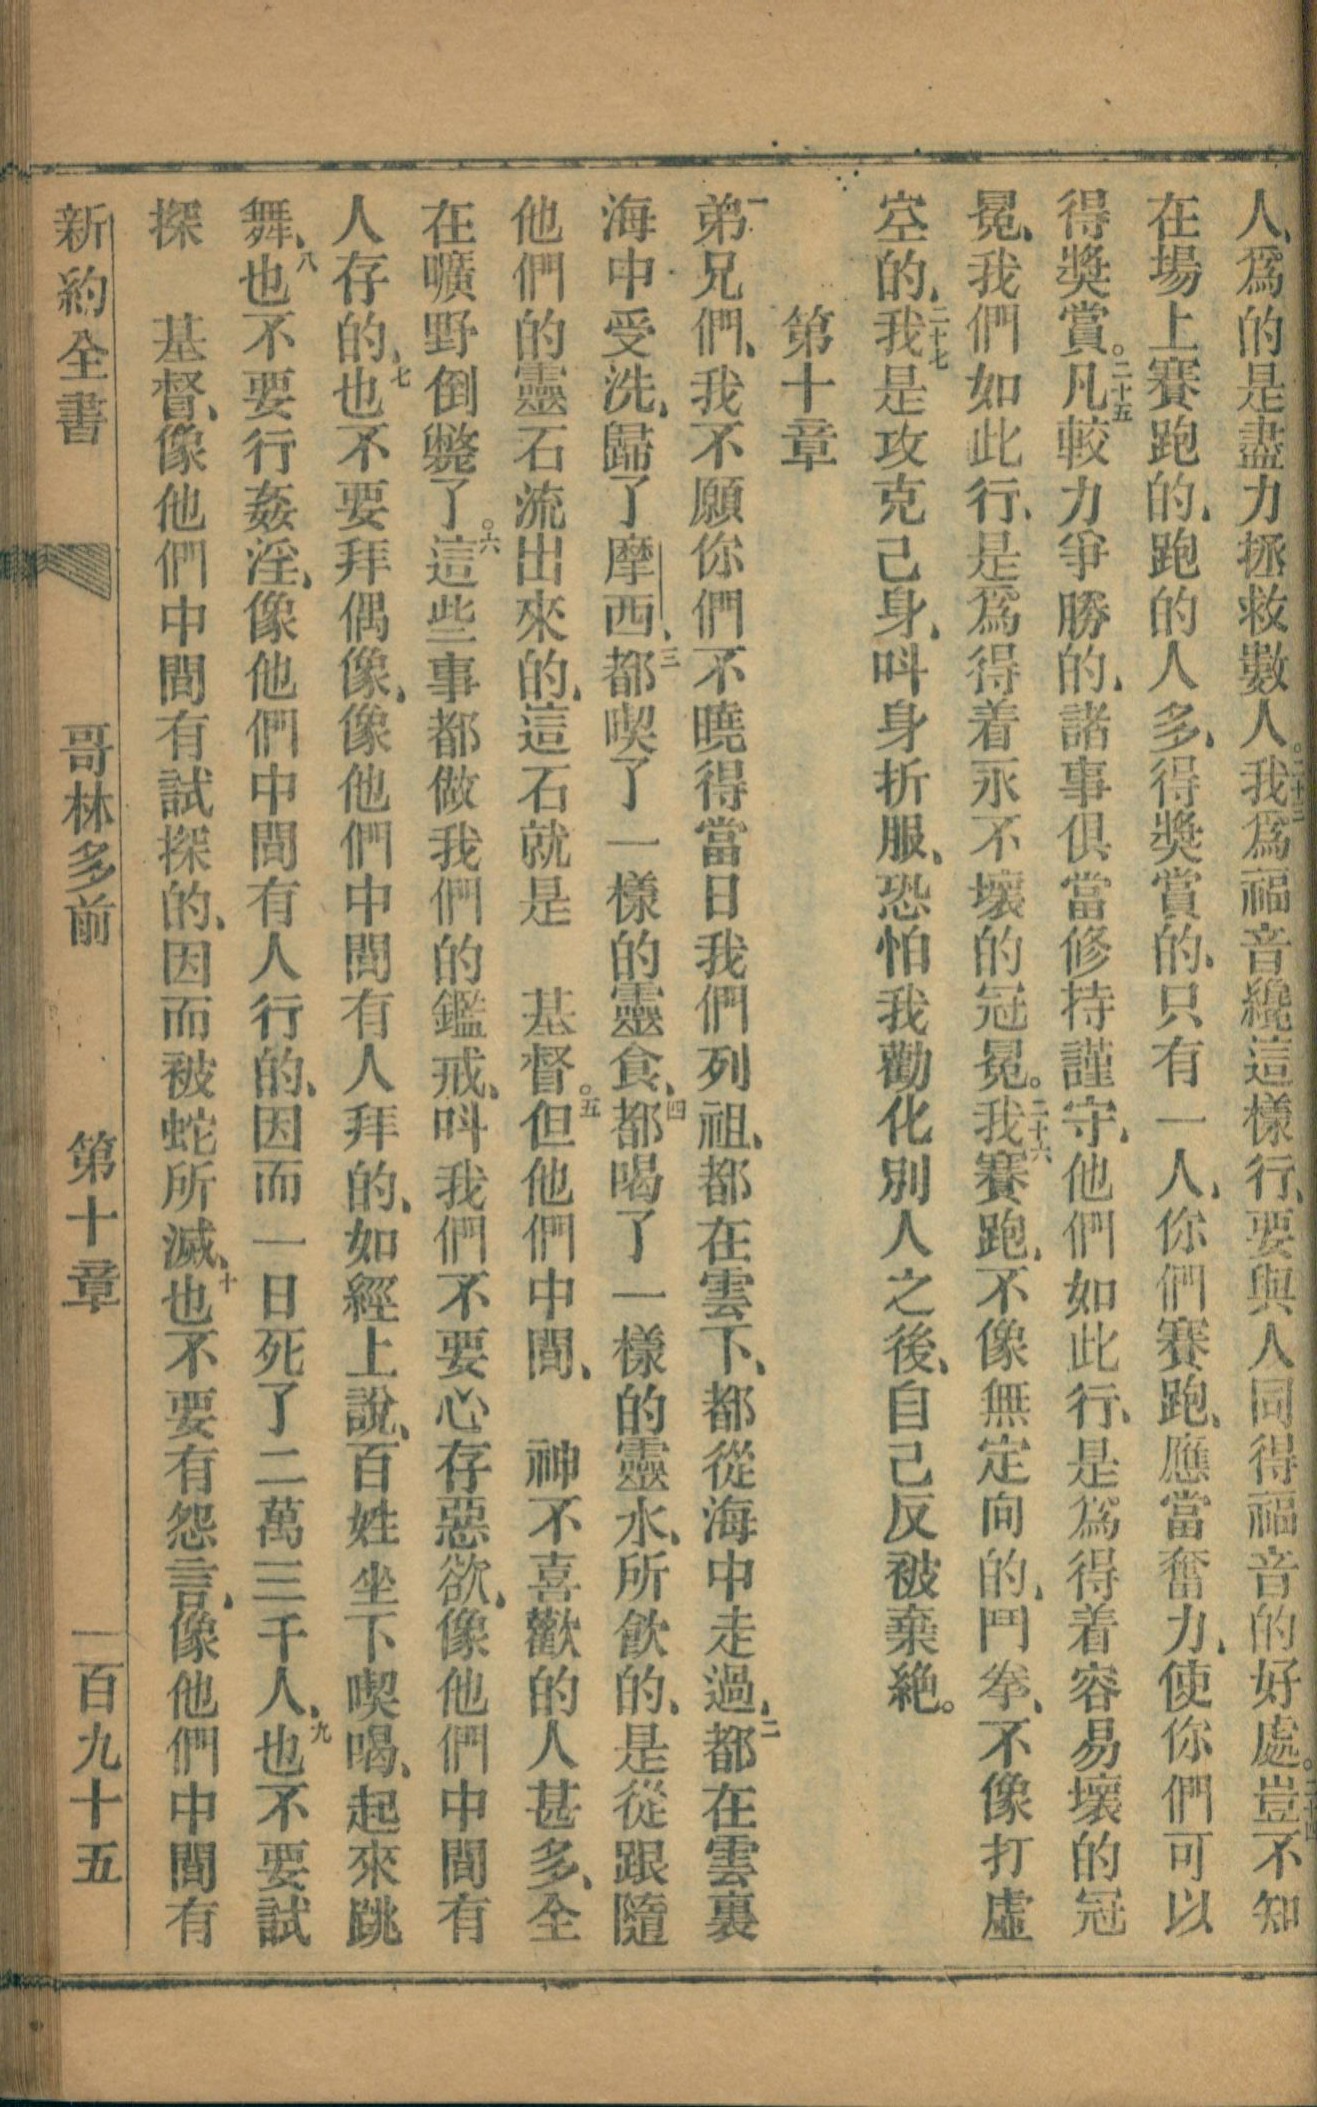 人、爲的是盡力拯救數人。二十三我爲福音纔這樣行、要與人同得福音的好處。二十四豈不知
在場上賽跑的、跑的人多、得獎賞的、只有一人、你們賽跑、應當奮力、使你們可以
得獎賞。二十五凡較力爭勝的、諸事俱當修持謹守、他們如此行、是爲得着容易壞的冠
冕、我們如此行、是爲得着永不壞的冠冕。二十六我賽跑、不像無定向的、鬥拳、不像打虛
空的、二十七我是攻克己身、呌身折服、恐怕我勸化別人之後、自己反被棄絕。
第十章
一弟兄們、我不願你們不曉得當日我們列祖、都在雲下、都從海中走過、二都在雲裏
海中受洗、歸了摩西、三都喫了一樣的靈食、四都喝了一樣的靈水、所飲的、是從跟隨
他們的靈石流出來的、這石就是　基督。五但他們中間、　神不喜歡的人甚多、全
在曠野倒斃了。六這些事都做我們的鑑戒、呌我們不要心存惡欲、像他們中間有
人存的、七也不要拜偶像、像他們中間有人拜的、如經上說、百姓坐下喫喝、起來跳
舞、八也不要行姦淫、像他們中間有人行的、因而一日死了二萬三千人、九也不要試
探　基督、像他們中間有試探的、因而被蛇所滅、十也不要有怨言、像他們中間有
新約全書　哥林多前　第十章　一百九十五